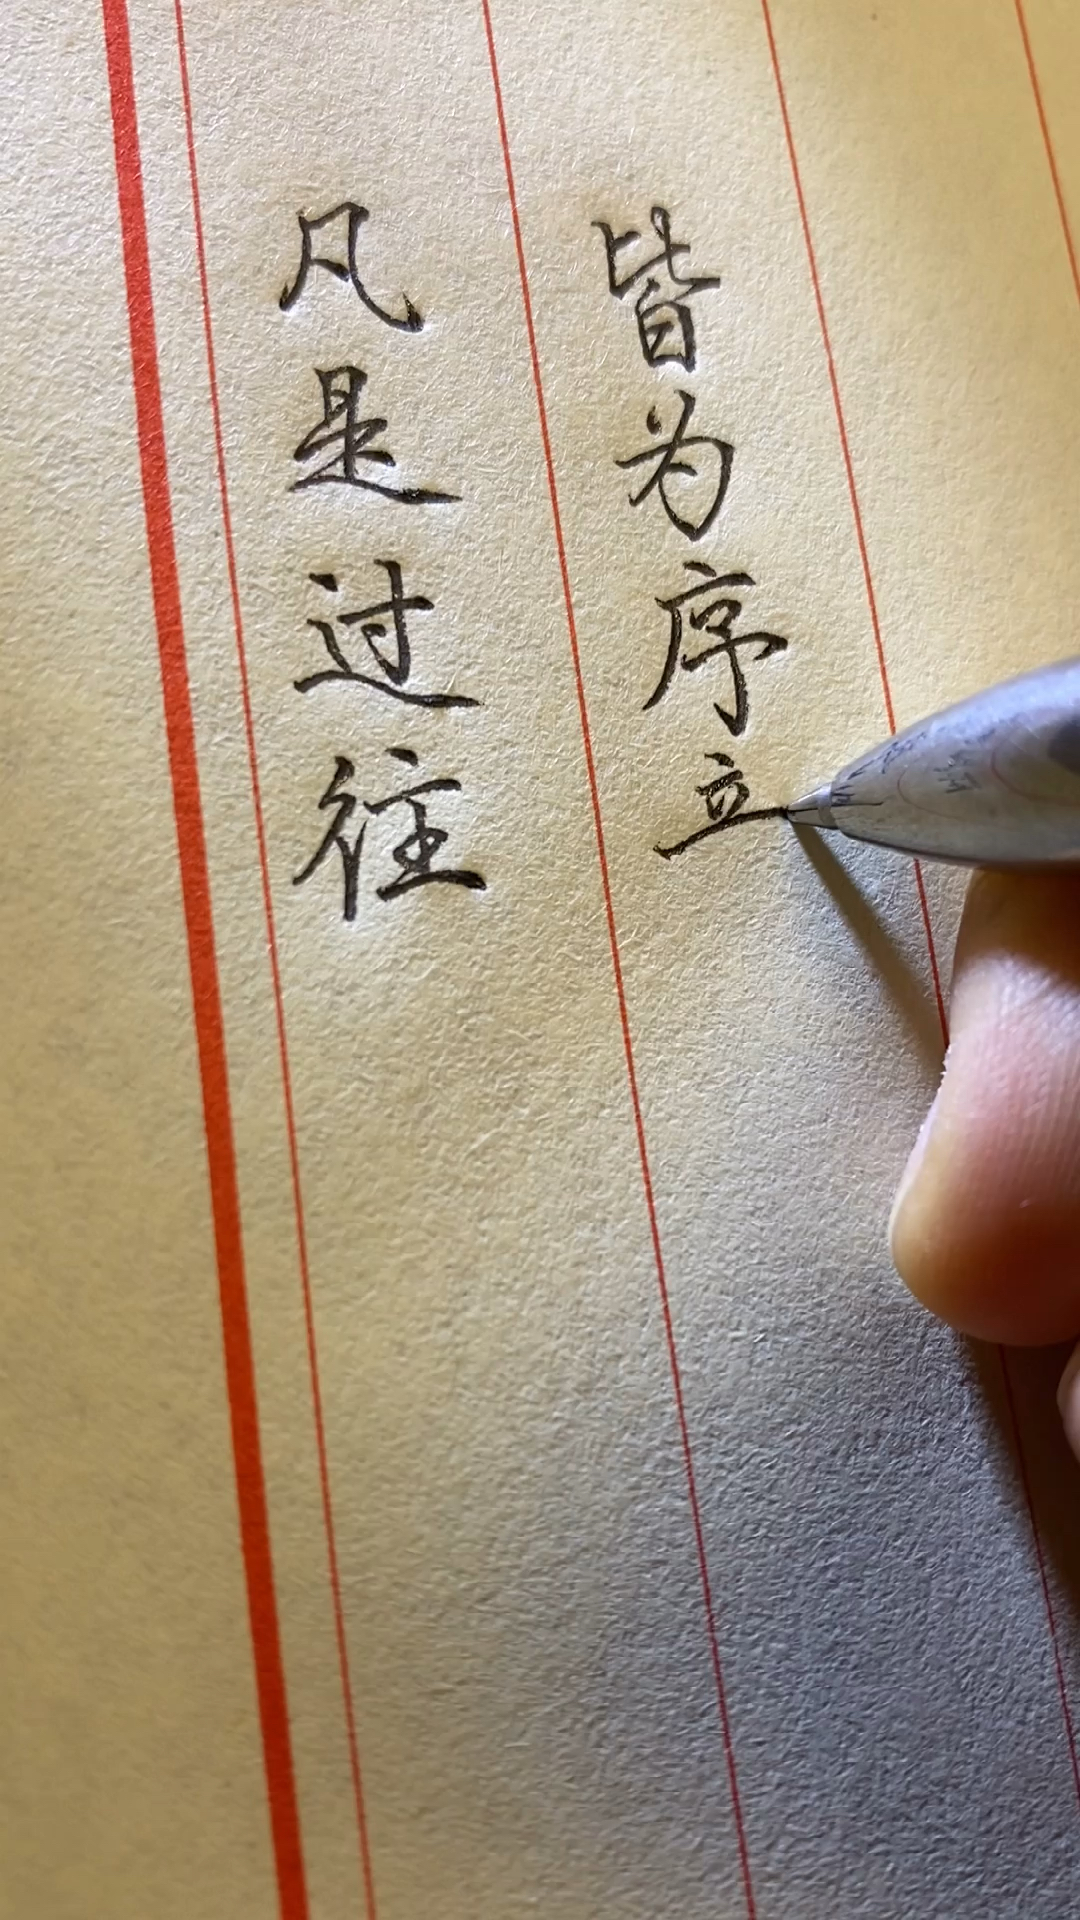 凡是过往
皆为序立